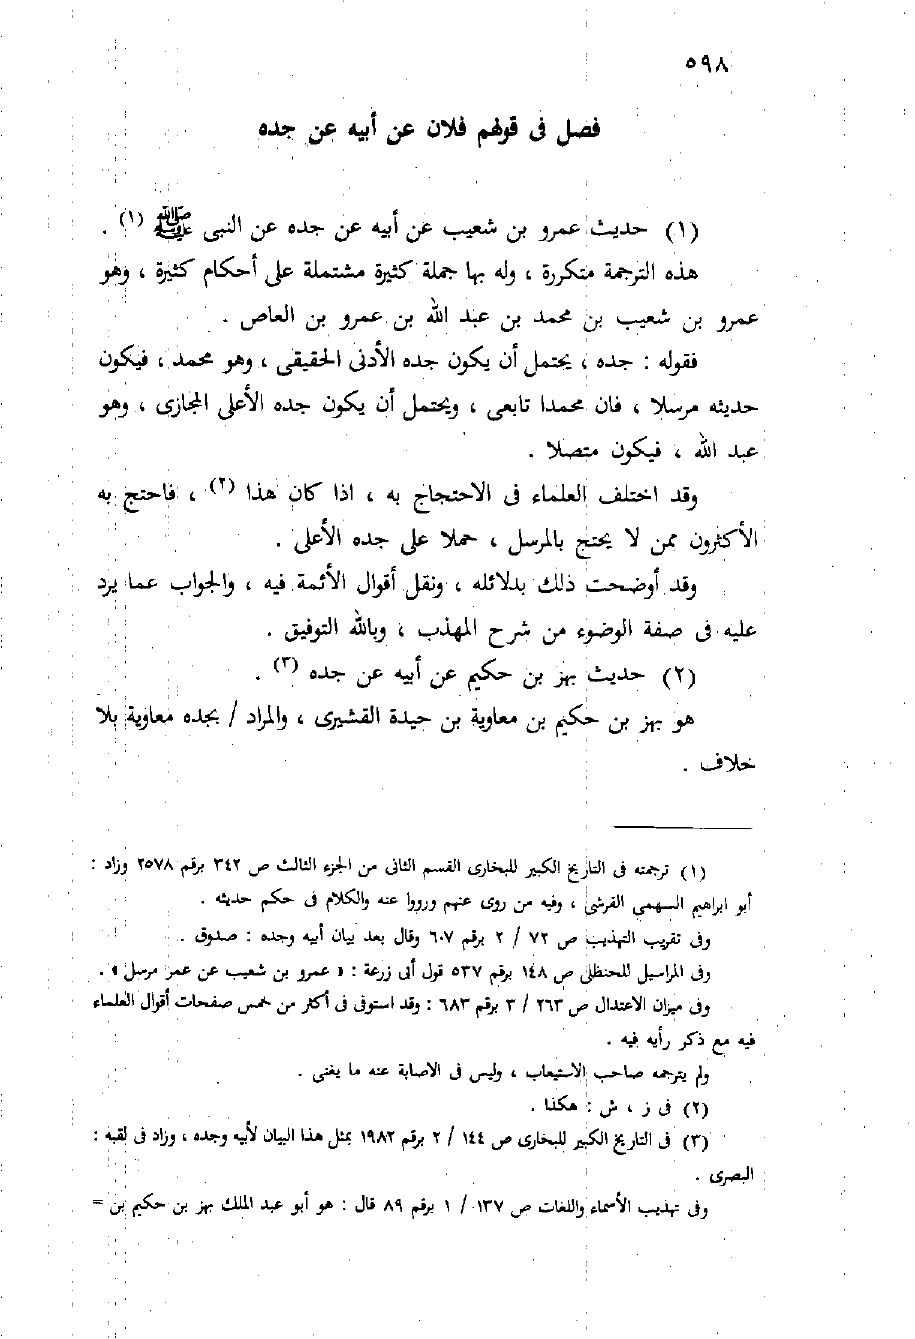 ٥٩٨
فصل فى قولهم فلان عن أبيه عن جده
(١) حديث عمرو بن شعيب عن أبيه عن جده عن النبى ﷺ (١) .
هذه الترجمة متكررة ، وله بها جملة كثيرة مشتملة على أحكام كثيرة ، وهو
عمرو بن شعيب بن محمد بن عبد الله بن عمرو بن العاص .
فقوله : جده ، يحتمل أن يكون جده الأدنى الحقيقى ، وهو محمد ، فيكون
حديثه مرسلا ، فان محمدا تابعى ، ويحتمل أن يكون جده الأعلى المجازى ، وهو
عبد الله ، فيكون متصلا .
وقد اختلف العلماء فى الاحتجاج به ، اذا كان هذا (٢) ، فاحتج به
الأكثرون ممن لا يحتج بالمرسل ، حملا على جده الأعلى .
وقد أوضحت ذلك بدلائله ، ونقل أقوال الأئمة فيه ، والجواب عما يرد
عليه فى صفة الوضوء من شرح المهذب ، وبالله التوفيق .
(٢) حديث بهز بن حكيم عن أبيه عن جده (٣) .
هو بهز بن حكيم بن معاوية بن حيدة القشيرى ، والمراد / بجده معاوية بلا
خلاف .
(١) ترجمته فى التاريخ الكبير للبخارى القسم الثانى من الجزء الثالث ص ٣٤٢ برقم ٢٥٧٨ وزاد :
أبو ابراهيم السهمى القرشى ، وفيه من روى عنهم ورووا عنه والكلام فى حكم حديثه .
وفى تقريب التهذيب ص ٧٢ / ٢ برقم ٦٠٧ وقال بعد بيان أبيه وجده : صدوق .
وفى المراسيل للحنظلى ص ١٤٨ برقم ٥٣٧ قول أبى زرعة : « عمرو بن شعيب عن عمر مرسل » .
وفى ميزان الاعتدال ص ٢٦٣ / ٣ برقم ٦٨٣ : وقد استوفى فى أكثر من خمس صفحات أقوال العلماء
فيه مع ذكر رأيه فيه .
ولم يترجمه صاحب الاستيعاب ، وليس فى الاصابة عنه ما يغنى .
(٢) فى ز ، ش : هكذا .
(٣) فى التاريخ الكبير للبخارى ص ١٤٤ / ٢ برقم ١٩٨٢ بمثل هذا البيان لأبيه وجده ، وزاد فى لقبه :
البصرى .
وفى تهذيب الأسماء واللغات ص ١٣٧ / ١ برقم ٨٩ قال : هو أبو عبد الملك بهز بن حكيم بن =